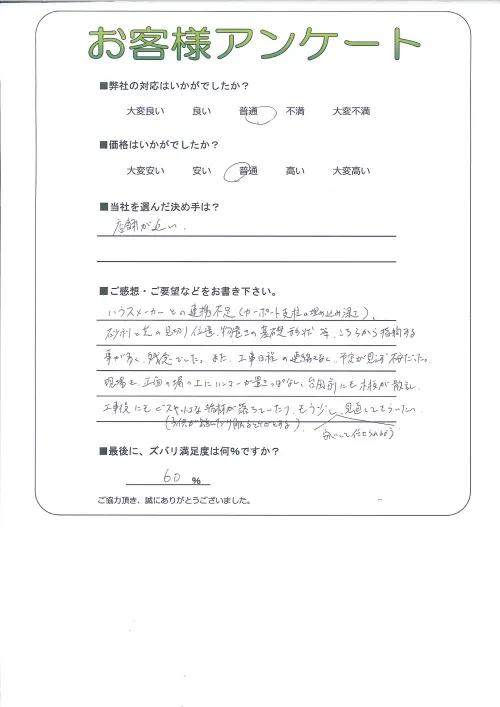 お客様アンケート
■弊社の対応はいかがでしたか？
大変良い 良い 普通 不満 大変不満
■価格はいかがでしたか？
大変安い 安い 普通 高い 大変高い
■当社を選んだ決め手は？
店舗が近い.
■ご感想・ご要望などをお書き下さい。
ハウスメーカーとの連携不足（カーポート支柱の埋め込み深さ）、
砂利と芝の見切り位置、物置きの基礎形状 等、こちらから指摘する
事が多く、残念でした。また、工事日程の連絡もなく、予定が見えず不安だった。
現場も、正面の塀の上にハンマーが置きっぱなし、台風前にも木枝が散乱し、
工事後にもビスや の端材が落ちていたり、もう少し、見直してもらいたい。
■最後に、ズバリ満足度は何%ですか？
60 %
ご協力頂き、誠にありがとうございました。